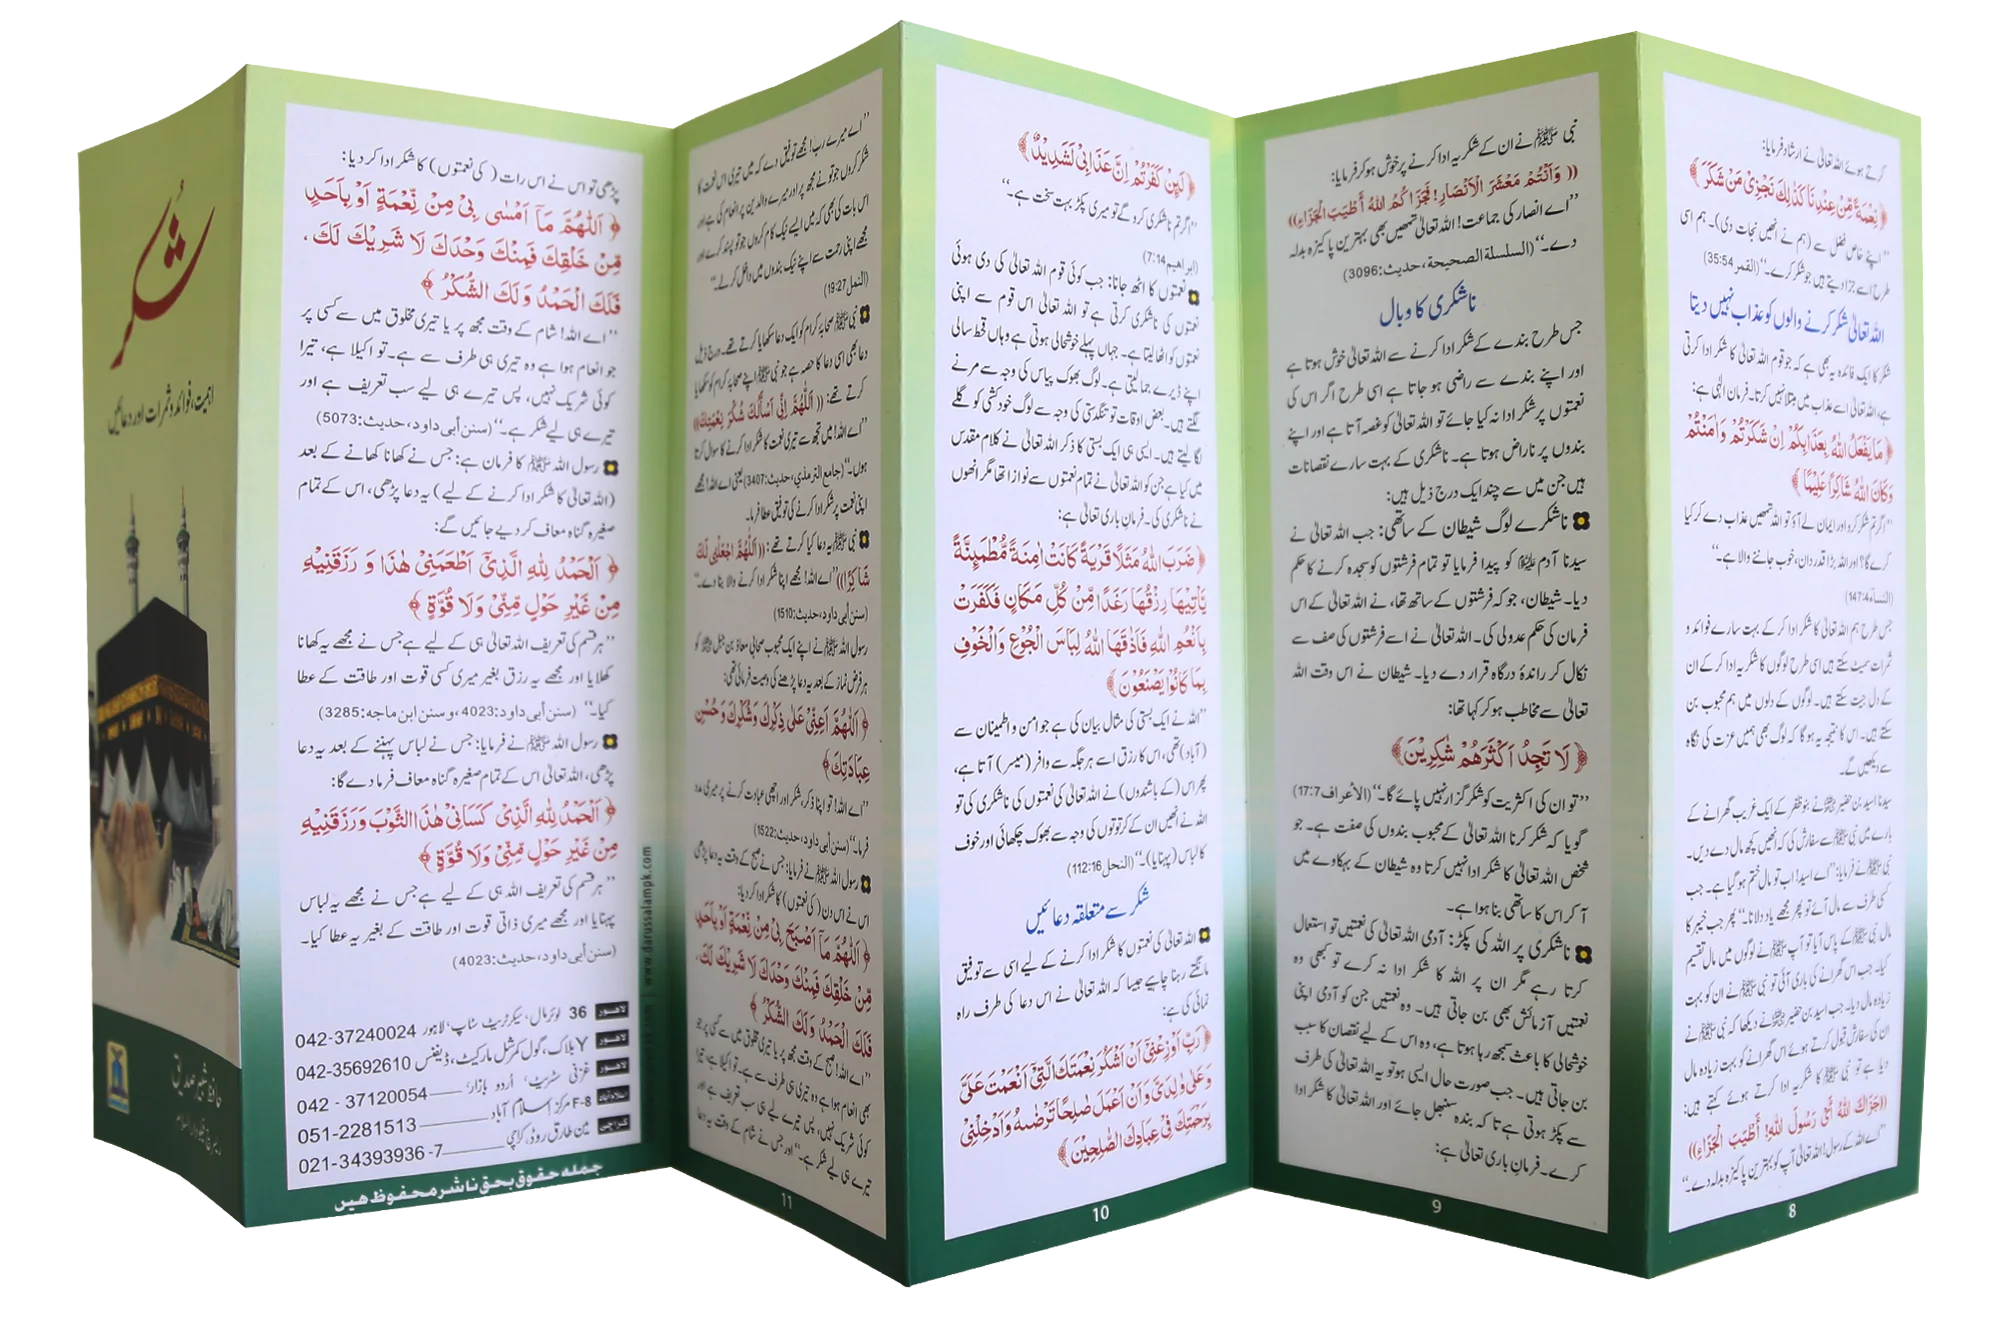 کرتے ہوئے اللہ تعالیٰ نے ارشاد فرمایا:
﴿نِعْمَةً مِّنْ عِنْدِنَا كَذٰلِكَ نَجْزِيْ مَنْ شَكَرَ﴾
’’اپنے خاص فضل سے (ہم نے انھیں نجات دی)۔ ہم اسی
طرح اسے جزا دیتے ہیں جو شکر کرے۔‘‘ (القمر 35:54)
اللہ تعالیٰ شکر کرنے والوں کو عذاب نہیں دیتا
شکر کا ایک فائدہ یہ بھی ہے کہ جو قوم اللہ تعالیٰ کا شکر ادا کرتی
ہے، اللہ تعالیٰ اسے عذاب میں مبتلا نہیں کرتا۔ فرمان الٰہی ہے:
﴿مَا يَفْعَلُ اللّٰهُ بِعَذَابِكُمْ اِنْ شَكَرْتُمْ وَاٰمَنْتُمْ
وَكَانَ اللّٰهُ شَاكِرًا عَلِيْمًا﴾
’’اگر تم شکر کرو اور ایمان لے آؤ تو اللہ تمھیں عذاب دے کر کیا
کرے گا؟ اور اللہ بڑا قدر دان، خوب جاننے والا ہے۔‘‘
(النساء 147:4)
جس طرح ہم اللہ تعالیٰ کا شکر ادا کر کے بہت سارے فوائد و
ثمرات سمیٹ سکتے ہیں اسی طرح لوگوں کا شکریہ ادا کر کے ان
کے دل جیت سکتے ہیں۔ لوگوں کے دلوں میں ہم محبوب بن
سکتے ہیں۔ اس کا نتیجہ یہ ہو گا کہ لوگ بھی ہمیں عزت کی نگاہ
سے دیکھیں گے۔
سیدنا اسید بن حضیر ؓ نے بنو ظفر کے ایک غریب گھرانے کے
بارے میں نبی ﷺ سے سفارش کی کہ انھیں کچھ مال دے دیں۔
نبی ﷺ نے فرمایا: ’’اے اسید! اب تو مال ختم ہو گیا ہے۔ جب
کسی طرف سے مال آئے تو پھر مجھے یاد دلانا۔‘‘ پھر جب خیبر کا
مال نبی ﷺ کے پاس آیا تو آپ ﷺ نے لوگوں میں مال تقسیم
کیا۔ جب اس گھرانے کی باری آئی تو نبی ﷺ نے ان کو بہت
زیادہ مال دیا۔ جب اسید بن حضیر ؓ نے دیکھا کہ نبی ﷺ نے
ان کی سفارش قبول کرتے ہوئے اس گھرانے کو بہت زیادہ مال
دیا ہے تو نبی ﷺ کا شکریہ ادا کرتے ہوئے کہتے ہیں:
((جَزَاكَ اللّٰهُ أَيْ رَسُولَ اللّٰهِ! أَطْيَبَ الْجَزَاءِ))
’’اے اللہ کے رسول! اللہ تعالیٰ آپ کو بہترین پاکیزہ بدلہ دے۔‘‘
8
نبی ﷺ نے ان کے شکریہ ادا کرنے پر خوش ہو کر فرمایا:
((وَأَنْتُمْ مَعْشَرَ الْأَنْصَارِ! فَجَزَاكُمُ اللّٰهُ أَطْيَبَ الْجَزَاءِ))
’’اے انصار کی جماعت! اللہ تعالیٰ تمھیں بھی بہترین پاکیزہ بدلہ
دے۔‘‘ (السلسلة الصحيحة، حدیث:3096)
ناشکری کا وبال
جس طرح بندے کے شکر ادا کرنے سے اللہ تعالیٰ خوش ہوتا ہے
اور اپنے بندے سے راضی ہو جاتا ہے اسی طرح اگر اس کی
نعمتوں پر شکر ادا نہ کیا جائے تو اللہ تعالیٰ کو غصہ آتا ہے اور اپنے
بندوں پر ناراض ہوتا ہے۔ ناشکری کے بہت سارے نقصانات
ہیں جن میں سے چند ایک درج ذیل ہیں:
ناشکرے لوگ شیطان کے ساتھی: جب اللہ تعالیٰ نے
سیدنا آدم علیہ السلام کو پیدا فرمایا تو تمام فرشتوں کو سجدہ کرنے کا حکم
دیا۔ شیطان، جو کہ فرشتوں کے ساتھ تھا، نے اللہ تعالیٰ کے اس
فرمان کی حکم عدولی کی۔ اللہ تعالیٰ نے اسے فرشتوں کی صف سے
نکال کر راندۂ درگاہ قرار دے دیا۔ شیطان نے اس وقت اللہ
تعالیٰ سے مخاطب ہو کر کہا تھا:
﴿لَا تَجِدُ اَكْثَرَهُمْ شٰكِرِيْنَ﴾
’’تو ان کی اکثریت کو شکر گزار نہیں پائے گا۔‘‘ (الأعراف 17:7)
گویا کہ شکر کرنا اللہ تعالیٰ کے محبوب بندوں کی صفت ہے۔ جو
شخص اللہ تعالیٰ کا شکر ادا نہیں کرتا وہ شیطان کے بہکاوے میں
آ کر اس کا ساتھی بنا ہوا ہے۔
ناشکری پر اللہ کی پکڑ: آدمی اللہ تعالیٰ کی نعمتیں تو استعمال
کرتا رہے مگر ان پر اللہ کا شکر ادا نہ کرے تو کبھی وہ
نعمتیں آزمائش بھی بن جاتی ہیں۔ وہ نعمتیں جن کو آدمی اپنی
خوشحالی کا باعث سمجھ رہا ہوتا ہے، وہ اس کے لیے نقصان کا سبب
بن جاتی ہیں۔ جب صورت حال ایسی ہو تو یہ اللہ تعالیٰ کی طرف
سے پکڑ ہوتی ہے تا کہ بندہ سنبھل جائے اور اللہ تعالیٰ کا شکر ادا
کرے۔ فرمان باری تعالیٰ ہے:
9
﴿لَىِٕنْ كَفَرْتُمْ اِنَّ عَذَابِيْ لَشَدِيْدٌ﴾
’’اگر تم ناشکری کرو گے تو میری پکڑ بہت سخت ہے۔‘‘
(ابراهيم 7:14)
نعمتوں کا اٹھ جانا: جب کوئی قوم اللہ تعالیٰ کی دی ہوئی
نعمتوں کی ناشکری کرتی ہے تو اللہ تعالیٰ اس قوم سے اپنی
نعمتوں کو اٹھا لیتا ہے۔ جہاں پہلے خوشحالی ہوتی ہے وہاں قحط سالی
اپنے ڈیرے جما لیتی ہے۔ لوگ بھوک پیاس کی وجہ سے مرنے
لگتے ہیں۔ بعض اوقات تو تنگدستی کی وجہ سے لوگ خودکشی کو گلے
لگا لیتے ہیں۔ ایسی ہی ایک بستی کا ذکر اللہ تعالیٰ نے کلام مقدس
میں کیا ہے جن کو اللہ تعالیٰ نے تمام نعمتوں سے نوازا تھا مگر انھوں
نے ناشکری کی۔ فرمان باری تعالیٰ ہے:
﴿ضَرَبَ اللّٰهُ مَثَلًا قَرْيَةً كَانَتْ اٰمِنَةً مُّطْمَىِٕنَّةً
يَّاْتِيْهَا رِزْقُهَا رَغَدًا مِّنْ كُلِّ مَكَانٍ فَكَفَرَتْ
بِاَنْعُمِ اللّٰهِ فَاَذَاقَهَا اللّٰهُ لِبَاسَ الْجُوْعِ وَالْخَوْفِ
بِمَا كَانُوْا يَصْنَعُوْنَ﴾
’’اللہ نے ایک بستی کی مثال بیان کی ہے جو امن و اطمینان سے
(آباد) تھی، اس کا رزق اسے ہر جگہ سے وافر (میسر) آتا ہے،
پھر اس (کے باشندوں) نے اللہ تعالیٰ کی نعمتوں کی ناشکری کی تو
اللہ نے انھیں ان کے کرتوتوں کی وجہ سے بھوک چکھائی اور خوف
کا لباس (پہنایا)۔‘‘ (النحل 112:16)
شکر سے متعلقہ دعائیں
اللہ تعالیٰ کی نعمتوں کا شکر ادا کرنے کے لیے اسی سے توفیق
مانگتے رہنا چاہیے جیسا کہ اللہ تعالیٰ نے اس دعا کی طرف راہ
نمائی کی ہے:
﴿رَبِّ اَوْزِعْنِيْٓ اَنْ اَشْكُرَ نِعْمَتَكَ الَّتِيْٓ اَنْعَمْتَ عَلَيَّ
وَعَلٰى وَالِدَيَّ وَاَنْ اَعْمَلَ صَالِحًا تَرْضٰىهُ وَاَدْخِلْنِيْ
بِرَحْمَتِكَ فِيْ عِبَادِكَ الصّٰلِحِيْنَ﴾
10
’’اے میرے رب! مجھے توفیق دے کہ میں تیری اس نعمت کا
شکر کروں جو تو نے مجھ پر اور میرے والدین پر انعام کی ہے اور
اس بات کی بھی کہ میں ایسے نیک کام کروں جو تو پسند کرے اور
مجھے اپنی رحمت سے اپنے نیک بندوں میں داخل کر لے۔‘‘
(النمل 19:27)
نبی ﷺ صحابۂ کرام کو ایک دعا سکھایا کرتے تھے۔ درج ذیل
دعا بھی اسی دعا کا حصہ ہے جو نبی ﷺ اپنے صحابۂ کرام کو سکھایا
کرتے تھے: ((اَللّٰهُمَّ اِنِّي أَسْأَلُكَ شُكْرَ نِعْمَتِكَ))
’’اے اللہ! میں تجھ سے تیری نعمت کا شکر ادا کرنے کا سوال کرتا
ہوں۔‘‘ (جامع الترمذي، حدیث:3407) یعنی اے اللہ! مجھے
اپنی نعمت پر شکر ادا کرنے کی توفیق عطا فرما۔
نبی ﷺ یہ دعا کیا کرتے تھے: ((اَللّٰهُمَّ اجْعَلْنِي لَكَ
شَاكِرًا)) ’’اے اللہ! مجھے اپنا شکر ادا کرنے والا بنا دے۔‘‘
(سنن أبي داود، حدیث:1510)
رسول اللہ ﷺ نے اپنے ایک محبوب صحابی معاذ بن جبل ؓ کو
ہر فرض نماز کے بعد یہ دعا پڑھنے کی وصیت فرمائی تھی:
﴿اَللّٰهُمَّ اَعِنِّيْ عَلٰى ذِكْرِكَ وَشُكْرِكَ وَحُسْنِ
عِبَادَتِكَ﴾
’’اے اللہ! تو اپنا ذکر، شکر اور اچھی عبادت کرنے پر میری مدد
فرما۔‘‘ (سنن أبي داود، حدیث:1522)
رسول اللہ ﷺ نے فرمایا: جس نے صبح کے وقت یہ دعا پڑھی
اس نے اس دن (کی نعمتوں) کا شکر ادا کر دیا:
﴿اَللّٰهُمَّ مَآ اَصْبَحَ بِيْ مِنْ نِّعْمَةٍ اَوْ بِاَحَدٍ
مِّنْ خَلْقِكَ فَمِنْكَ وَحْدَكَ لَا شَرِيْكَ لَكَ،
فَلَكَ الْحَمْدُ وَلَكَ الشُّكْرُ﴾
’’اے اللہ! صبح کے وقت مجھ پر یا تیری مخلوق میں سے کسی پر جو
بھی انعام ہوا ہے وہ تیری ہی طرف سے ہے۔ تو اکیلا ہے، تیرا
کوئی شریک نہیں، پس تیرے لیے ہی سب تعریف ہے اور
تیرے ہی لیے شکر ہے۔‘‘ اور جس نے شام کے وقت یہ دعا
11
پڑھی تو اس نے اس رات (کی نعمتوں) کا شکر ادا کر دیا:
﴿اَللّٰهُمَّ مَآ اَمْسٰى بِيْ مِنْ نِّعْمَةٍ اَوْ بِاَحَدٍ
مِّنْ خَلْقِكَ فَمِنْكَ وَحْدَكَ لَا شَرِيْكَ لَكَ،
فَلَكَ الْحَمْدُ وَلَكَ الشُّكْرُ﴾
’’اے اللہ! شام کے وقت مجھ پر یا تیری مخلوق میں سے کسی پر
جو انعام ہوا ہے وہ تیری ہی طرف سے ہے۔ تو اکیلا ہے، تیرا
کوئی شریک نہیں، پس تیرے ہی لیے سب تعریف ہے اور
تیرے ہی لیے شکر ہے۔‘‘ (سنن أبي داود، حدیث:5073)
رسول اللہ ﷺ کا فرمان ہے: جس نے کھانا کھانے کے بعد
(اللہ تعالیٰ کا شکر ادا کرنے کے لیے) یہ دعا پڑھی، اس کے تمام
صغیرہ گناہ معاف کر دیے جائیں گے:
﴿اَلْحَمْدُ لِلّٰهِ الَّذِيْٓ اَطْعَمَنِيْ هٰذَا وَ رَزَقَنِيْهِ
مِنْ غَيْرِ حَوْلٍ مِّنِّيْ وَلَا قُوَّةٍ﴾
’’ہر قسم کی تعریف اللہ تعالیٰ ہی کے لیے ہے جس نے مجھے یہ کھانا
کھلایا اور مجھے یہ رزق بغیر میری کسی قوت اور طاقت کے عطا
کیا۔‘‘ (سنن أبي داود:4023، و سنن ابن ماجه:3285)
رسول اللہ ﷺ نے فرمایا: جس نے لباس پہننے کے بعد یہ دعا
پڑھی، اللہ تعالیٰ اس کے تمام صغیرہ گناہ معاف فرما دے گا:
﴿اَلْحَمْدُ لِلّٰهِ الَّذِيْ كَسَانِيْ هٰذَا الثَّوْبَ وَرَزَقَنِيْهِ
مِنْ غَيْرِ حَوْلٍ مِّنِّيْ وَلَا قُوَّةٍ﴾
’’ہر قسم کی تعریف اللہ ہی کے لیے ہے جس نے مجھے یہ لباس
پہنایا اور مجھے میری ذاتی قوت اور طاقت کے بغیر یہ عطا کیا۔
(سنن أبي داود، حدیث:4023)
لاہور 36 لوئر مال، سیکرٹریٹ سٹاپ، لاہور 042-37240024
لاہور Y بلاک، گول کمرشل مارکیٹ، ڈیفنس 042-35692610
لاہور غزنی سٹریٹ، اُردو بازار، 042 - 37120054
اسلام آباد F-8 مرکز اسلام آباد 051-2281513
کراچی مین طارق روڈ، کراچی 021-34393936 -7
جملہ حقوق بحق ناشر محفوظ ہیں
www.darussalampk.com
شُکر
اہمیت، فوائد و ثمرات اور دعائیں
حافظ شبیر صدیق